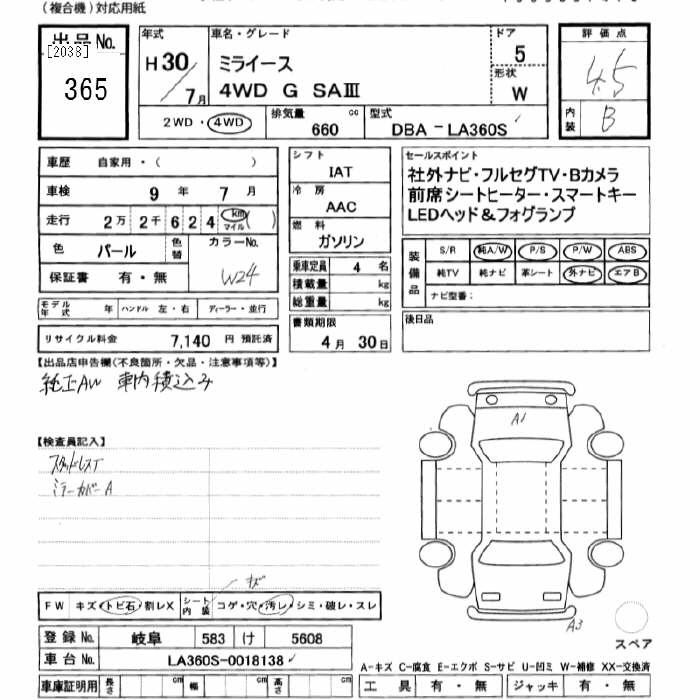 (複合機)対応用紙
出品No.
[2038]
365
年式
H30/7月
車名・グレード
ミライース
4WD G SAⅢ
ドア
5
形状
W
評価点
4.5
内装
B
2WD・4WD
排気量
660 cc
型式
DBA-LA360S
車歴 自家用・( )
車検 9年 7月
走行 2万 2千 6 2 4 km マイル ( )
色 パール 色替 カラーNo. W24
保証書 有・無
モデル年式 年 ハンドル 左・右 ディーラー・並行
リサイクル料金 7,140 円 預託済
シフト
IAT
冷房
AAC
燃料
ガソリン
乗車定員 4 名
積載量 kg
総重量 kg
書類期限
4月 30日
セールスポイント
社外ナビ・フルセグTV・Bカメラ
前席シートヒーター・スマートキー
LEDヘッド&フォグランプ
装備品
S/R 純A/W P/S P/W ABS
純TV 純ナビ 革シート 外ナビ エアB
ナビ型番:
後日品
【出品店申告欄(不良箇所・欠品・注意事項等)】
純正AW 車内積込み
【検査員記入】
スタッドレスT
ミラーカバーA
A1
A3
スペア
キズ
FW キズ・トビ石・割レX シート内装 コゲ・穴・汚レ・シミ・破レ・スレ
登録No. 岐阜 583 け 5608
車台No. LA360S-0018138
車庫証明用 長さ cm 幅 cm 高さ cm
A-キズ C-腐食 E-エクボ S-サビ U-凹ミ W-補修 XX-交換済
工具 有・無 ジャッキ 有・無